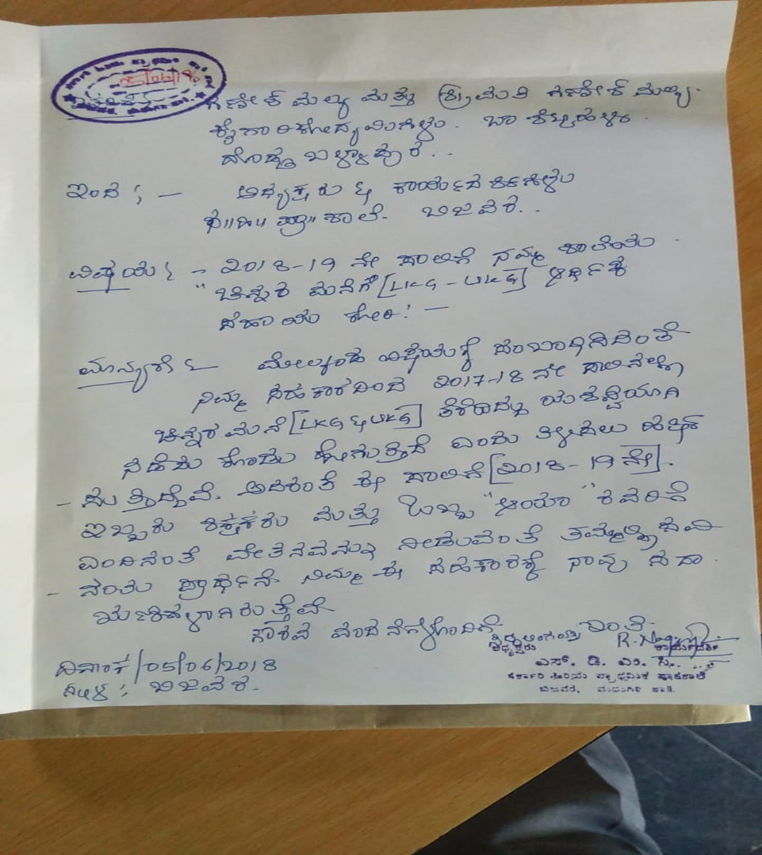 ಗಣೇಶ್ ಮಲ್ಯ ಮತ್ತು ಶ್ರೀಮತಿ ಗಣೇಶ್ ಮಲ್ಯ.
ಕೈಗಾರಿಕೋದ್ಯಮಿಗಳು. ಬಾಶೆಟ್ಟಿಹಳ್ಳಿ.
ದೊಡ್ಡ ಬಳ್ಳಾಪುರ..
ಇಂದ ; — ಅಧ್ಯಕ್ಷರು & ಕಾರ್ಯದರ್ಶಿಗಳು
ಶಾಲೆ. ಬಿಜವರ..
ವಿಷಯ : - 2018-19 ನೇ ಸಾಲಿಗೆ ನಮ್ಮ ಶಾಲೆಯ
"ಚಿನ್ನರ ಮನೆಗೆ [LKG - UKG] ಆರ್ಥಿಕ
ಸಹಾಯ ಕೋರಿ! —
ಮಾನ್ಯರೇ : ಮೇಲ್ಕಂಡ ವಿಷಯಕ್ಕೆ ಸಂಬಂಧಿಸಿದಂತೆ
ನಿಮ್ಮ ಸಹಕಾರದಿಂದ 2017-18 ನೇ ಸಾಲಿನಲ್ಲೂ
ಚಿನ್ನರ ಮನೆ [LKG & UKG] ತೆರೆದಿದ್ದು ಯಶಸ್ವಿಯಾಗಿ
ನಡೆದು ಕೊಂಡು ಹೋಗುತ್ತಿದೆ ಎಂದು ತಿಳಿಸಲು ಹರ್ಷಿ
- ಸು ತ್ತಿದ್ದೇವೆ. ಅದರಂತೆ ಈ ಸಾಲಿಗೆ [2018-19 ನೇ].
ಇಬ್ಬರು ಶಿಕ್ಷಕರು ಮತ್ತು ಒಬ್ಬ "ಆಯಾ" ರವರಿಗೆ
ಎಂದಿನಂತೆ ವೇತನವನ್ನು ನೀಡುವಂತೆ ತಮ್ಮಲ್ಲಿ ಸವಿ
- ನಯ ಪ್ರಾರ್ಥನೆ. ನಿಮ್ಮ ಈ ಸಹಕಾರಕ್ಕೆ ನಾವು ಸದಾ
ಋಣಿಗಳಾಗಿರುತ್ತೇವೆ
ಗೌರವ ವಂದನೆಗಳೊಂದಿಗೆ.
ಇಂತಿ.
ಅಧ್ಯಕ್ಷರು
ಕಾರ್ಯದರ್ಶಿ
ಎಸ್. ಡಿ. ಎಂ. ಸಿ.
ಸರ್ಕಾರಿ ಹಿರಿಯ ಪ್ರಾಥಮಿಕ ಪಾಠಶಾಲೆ
ಬಿಜವರ, ಮಧುಗಿರಿ ತಾ||
ದಿನಾಂಕ / 05/06/2018
ಸ್ಥಳ : ಬಿಜವರ.